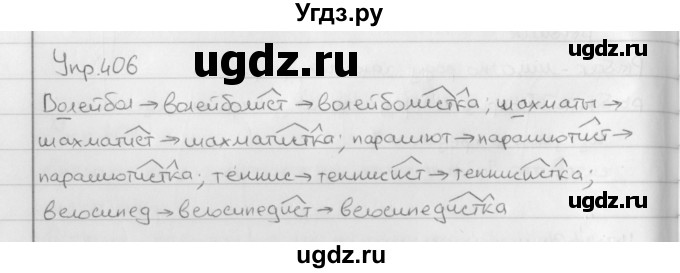 Угдз.ру
ugdz.ru
Упр.406
ugdz.ru
ugdz.ru
Волейбол → волейболист → волейболистка; шахматы →
шахматист → шахматистка; парашют → парашютист →
парашютистка; теннис → теннисист → теннисистка;
велосипед → велосипедист → велосипедистка
ugdz.ru
ugdz.ru